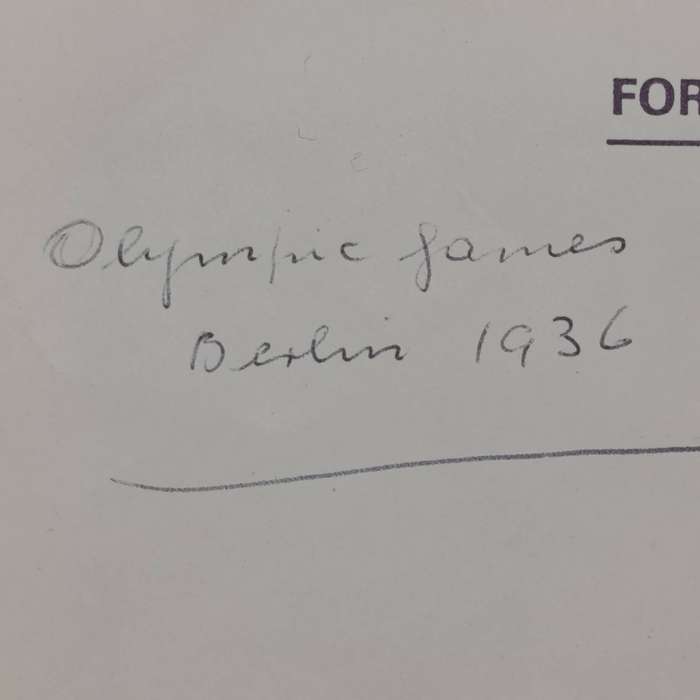 FOR
Olympic games
Berlin 1936